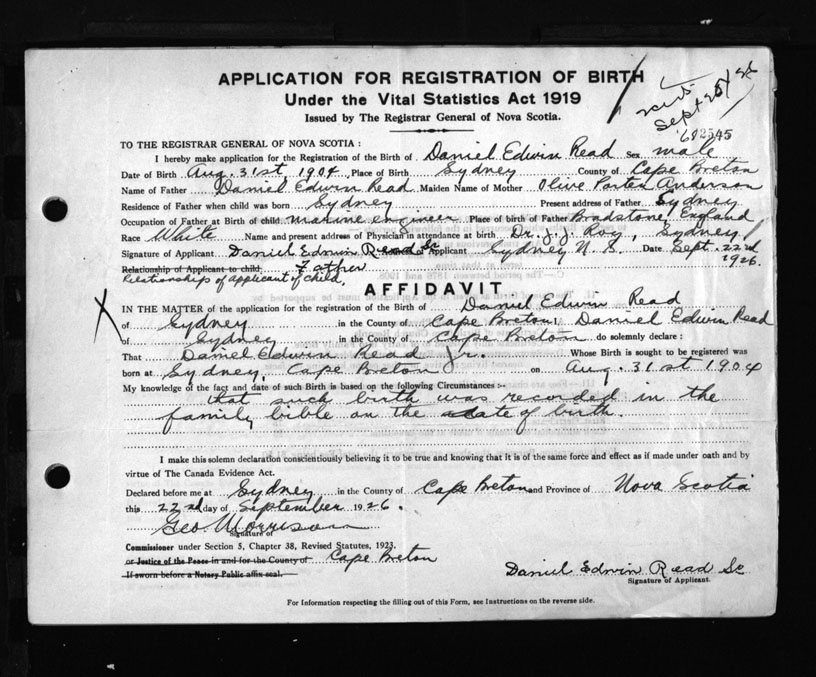 APPLICATION FOR REGISTRATION OF BIRTH
Under the Vital Statistics Act 1919
Issued by The Registrar General of Nova Scotia.
Sept 25/26
602545
TO THE REGISTRAR GENERAL OF NOVA SCOTIA:
I hereby make application for the Registration of the Birth of Daniel Edwin Read Sex male
Date of Birth Aug. 31st, 1904 Place of Birth Sydney County of Cape Breton
Name of Father Daniel Edwin Read Maiden Name of Mother Olive Porter Anderson
Residence of Father when child was born Sydney Present address of Father Sydney
Occupation of Father at Birth of child marine engineer Place of birth of Father Bradstone, England
Race White Name and present address of Physician in attendance at birth Dr. J. J. Roy, Sydney
Signature of Applicant Daniel Edwin Read Sr of Applicant Sydney N. S. Date Sept. 22nd
1926.
Relationship of Applicant to child Father
Relationships of applicant of child.
AFFIDAVIT
IN THE MATTER of the application for the registration of the Birth of Daniel Edwin Read
of Sydney in the County of Cape Breton I Daniel Edwin Read
of Sydney in the County of Cape Breton do solemnly declare:
That Daniel Edwin Read Jr. Whose Birth is sought to be registered was
born at Sydney, Cape Breton on Aug. 31st 1904
My knowledge of the fact and date of such Birth is based on the following Circumstances :-
that such birth was recorded in the
family bible on the date of birth.
I make this solemn declaration conscientiously believing it to be true and knowing that it is of the same force and effect as if made under oath and by
virtue of The Canada Evidence Act.
Declared before me at Sydney in the County of Cape Breton and Province of Nova Scotia
this 22nd day of September 1926.
Geo Morrison
Signature of
Commissioner under Section 5, Chapter 38, Revised Statutes, 1923.
or Justice of the Peace in and for the County of Cape Breton
If sworn before a Notary Public affix seal.
Daniel Edwin Read Sr
Signature of Applicant.
For Information respecting the filling out of this Form, see Instructions on the reverse side.